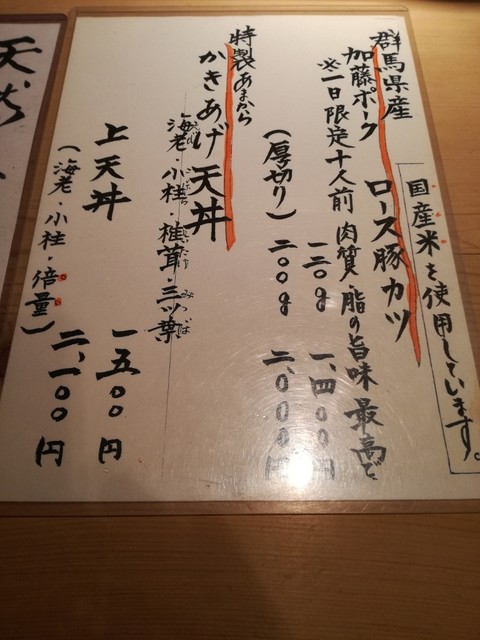 国産米を使用しています。
群馬県産
加藤ポーク ロース豚カツ
※一日限定十人前 肉質・脂の旨味 最高で
一二〇g 一、四〇〇円
(厚切り) 二〇〇g 二、〇〇〇円
特製あまから
かきあげ天丼
海老・小柱・椎茸・三ッ葉
えび こばしら しいたけ みつば
上天丼 一五〇〇円
(海老・小柱・倍量) 二、一〇〇円
天ぷら